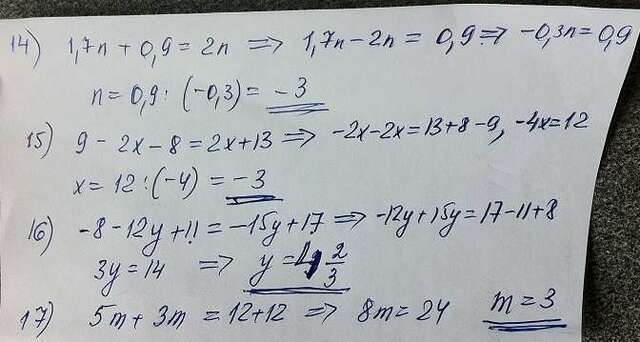 14) 1,7n + 0,9 = 2n => 1,7n - 2n = 0,9 => -0,3n = 0,9
n = 0,9 : (-0,3) = -3
15) 9 - 2x - 8 = 2x + 13 => -2x - 2x = 13 + 8 - 9, -4x = 12
x = 12 : (-4) = -3
16) -8 - 12y + 11 = -15y + 17 => -12y + 15y = 17 - 11 + 8
3y = 14 => y = 4 2/3
17) 5m + 3m = 12 + 12 => 8m = 24 m = 3